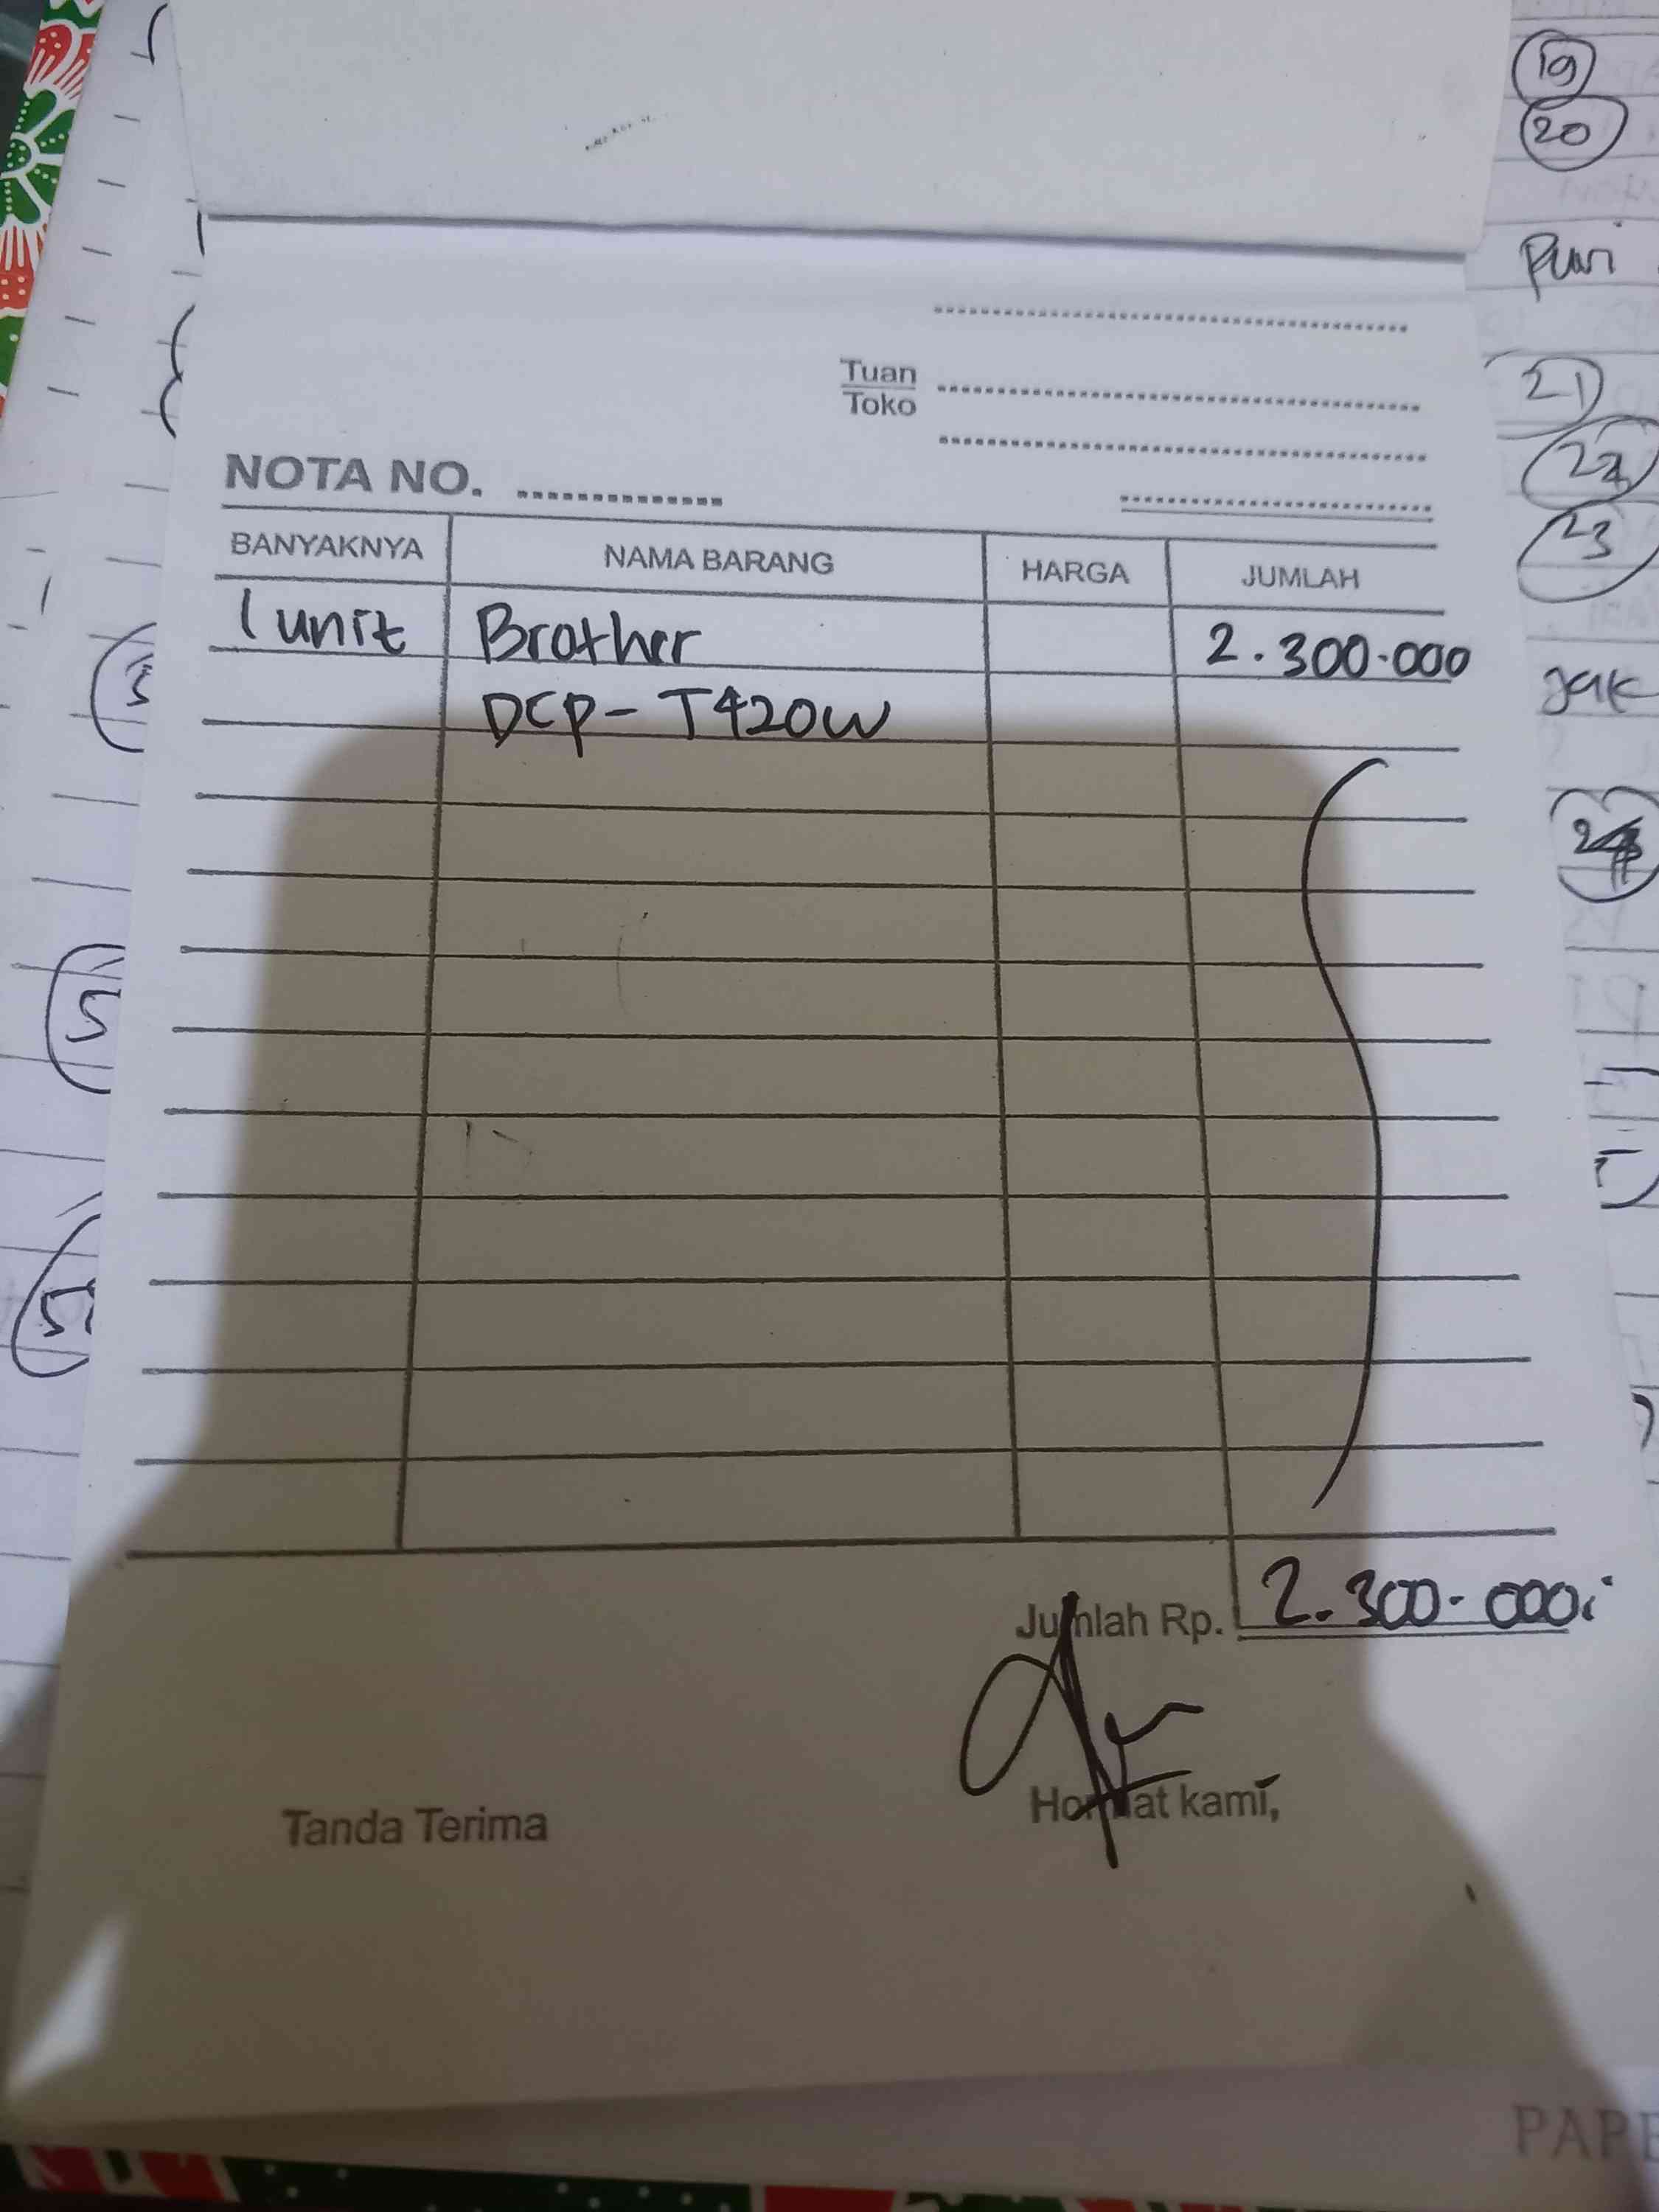 19
20
Puri
21
22
23
Tuan
Toko
NOTA NO.
BANYAKNYA NAMA BARANG HARGA JUMLAH
1 unit Brother 2.300.000
DCP-T420W
Jumlah Rp. 2.300.000
Tanda Terima Hormat kami,
5